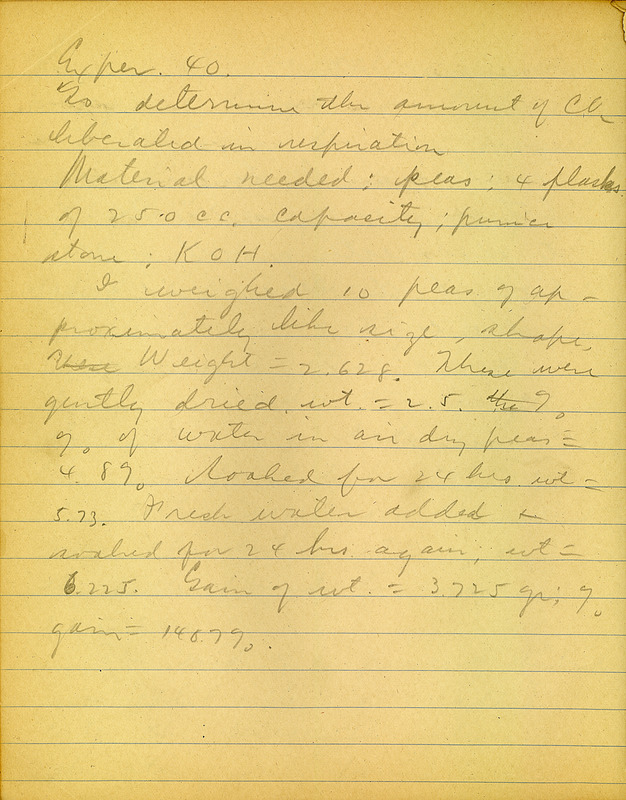 Exper. 40.
To determine the amount of CO2
liberated in respiration
Material needed; peas; 4 flasks
of 250 cc. capacity; pumice
stone; KOH.
I weighed 10 peas of ap-
proximately like size, shape,
Weight = 2.628. These were
gently dried, wt. = 2.5. the %
% of water in air dry peas =
4.8% Soaked for 24 hrs. wt =
5.73. Fresh water added +
soaked for 24 hrs. again; wt =
6.225. Gain of wt. = 3.725 gr; %
gain = 148.7%.